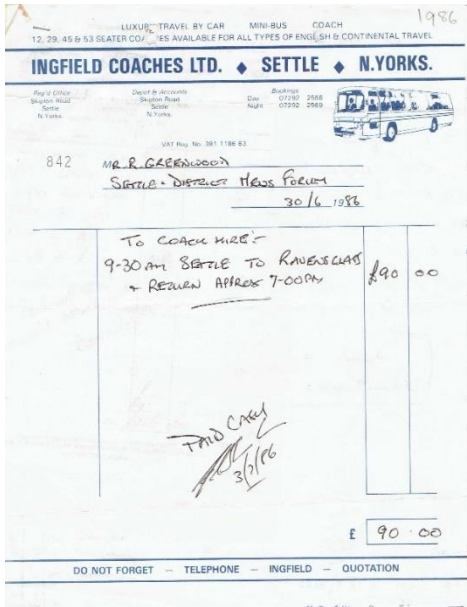 1986
LUXURY TRAVEL BY CAR MINI-BUS COACH
12, 29, 45 & 53 SEATER COACHES AVAILABLE FOR ALL TYPES OF ENGLISH & CONTINENTAL TRAVEL
INGFIELD COACHES LTD. ◆ SETTLE ◆ N.YORKS.
Reg'd Office
Skipton Road
Settle
N. Yorks.
Depot & Accounts
Skipton Road
Settle
N. Yorks.
Bookings
Day 07292 2568
Night 07292 2569
VAT Reg. No. 381 1186 63
842
MR R. GREENWOOD
SETTLE - DISTRICT MENS FORUM
30/6 1986
TO COACH HIRE:-
9-30 AM SETTLE TO RAVENGLASS £90 00
+ RETURN APPROX 7-00PM
PAID CASH
3/7/86
£ 90.00
DO NOT FORGET — TELEPHONE — INGFIELD — QUOTATION